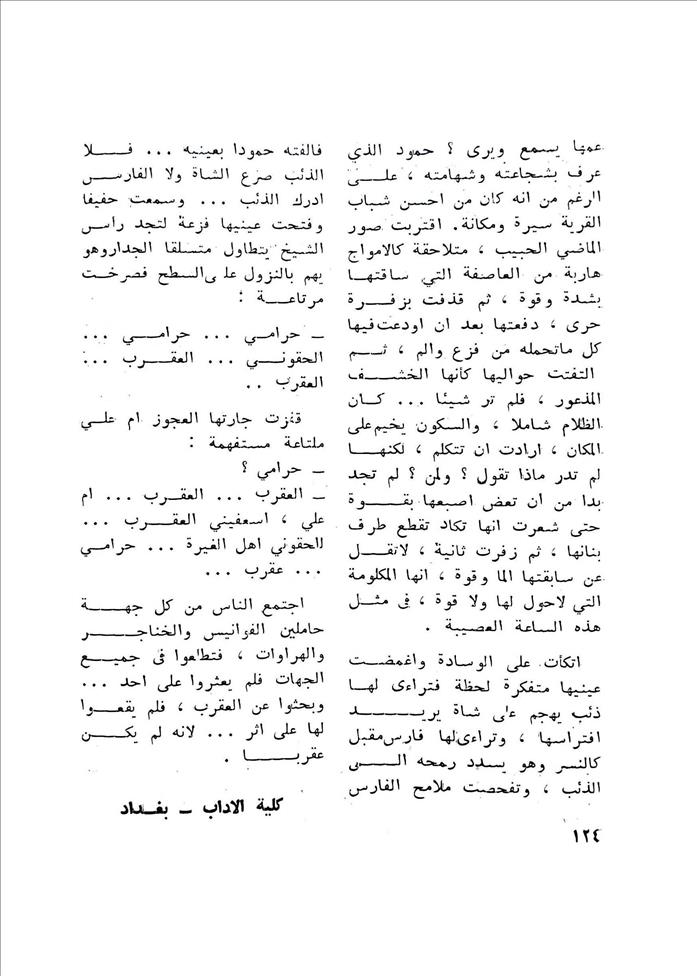 عمها يسمع ويرى ؟ حمود الذي
عرف بشجاعته وشهامته ، علـــى
الرغم من انه كان من احسن شباب
القرية سيرة ومكانة. اقتربت صور
الماضي الحبيب ، متلاحقة كالامواج
هاربة من العاصفة التي ساقتهـــا
بشدة وقوة ، ثم قذفت بزفـــرة
حرى ، دفعتها بعد ان اودعت فيها
كل ماتحمله من فزع والم ، ثـــم
التفتت حواليها كأنها الخشـــف
المذعور ، فلم تر شيئا ... كـــان
الظلام شاملا ، والسكون يخيم على
المكان ، ارادت ان تتكلم ، لكنهـــا
لم تدر ماذا تقول ؟ ولمن ؟ لم تجد
بدا من ان تعض اصبعها بقـــوة
حتى شعرت انها تكاد تقطع طرف
بنانها ، ثم زفرت ثانية ، لاتقـــل
عن سابقتها الما وقوة ، انها المكلومة
التي لاحول لها ولا قوة ، في مثـــل
هذه الساعة العصيبة .
اتكأت على الوسادة واغمضـــت
عينيها متفكرة لحظة فتراءى لهـــا
ذئب يهجم على شاة يريـــــد
افتراسها ، وتراءى لها فارس مقبل
كالنسر وهو يسدد رمحه الـــى
الذئب ، وتفحصت ملامح الفارس
فالفته حمودا بعينيه ... فـــلا
الذئب صرع الشاة ولا الفارس
ادرك الذئب ... وسمعت حفيفا
وفتحت عينيها فزعة لتجد راس
الشيخ يتطاول متسلقا الجدار وهو
يهم بالنزول على السطح فصرخت
مرتاعـــة :
ــ حرامي ... حرامـــي ...
الحقونـــي ... العقـــرب ...
العقرب ..
قفزت جارتها العجوز ام علـــي
ملتاعة مستفهمة :
ــ حرامي ؟
ــ العقرب ... العقـــرب ... ام
علي ، اسعفيني العقـــرب ...
الحقوني اهل الغيرة ... حرامي
... عقرب ...
اجتمع الناس من كل جهـــة
حاملين الفوانيس والخناجـــر
والهراوات ، فتطلعوا في جميـــع
الجهات فلم يعثروا على احد ...
وبحثوا عن العقرب ، فلم يقعـــوا
لها على اثر ... لانه لم يكـــن
عقربـــا .
كلية الاداب ــ بغـداد
١٢٤